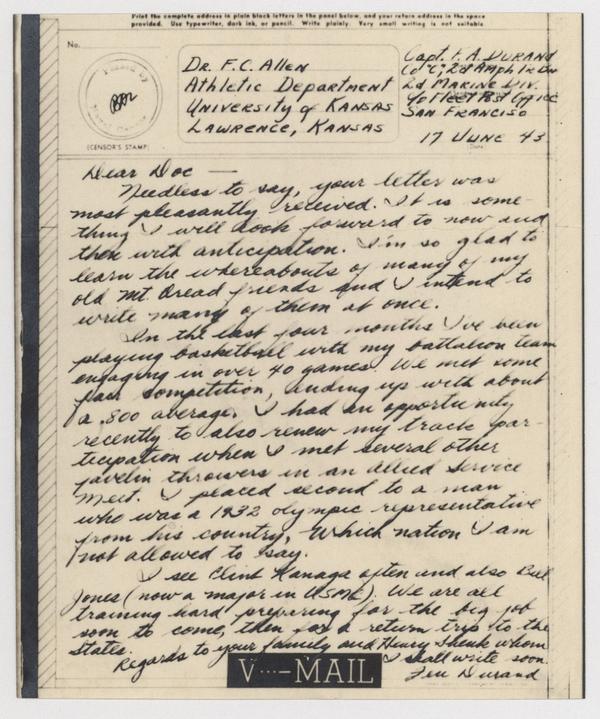 Print the complete address in plain block letters in the panel below, and your return address in the space
provided. Use typewriter, dark ink, or pencil. Write plainly. Very small writing is not suitable.
No.
Dr. F.C. Allen
Athletic Department
University of Kansas
Lawrence, Kansas
(CENSOR'S STAMP)
Capt. F. A. Durand
Co "C", 2d Amph Tr Bn
2d Marine Div.
c/o Fleet Post Office
San Francisco
17 June 43
(Date)
Dear Doc —
Needless to say, your letter was
most pleasantly received. It is some-
thing I will look forward to now and
then with anticipation. I'm so glad to
learn the whereabouts of many of my
old Mt. Oread friends and I intend to
write many of them at once.
In the last four months I've been
playing basketball with my battalion team
engaging in over 40 games. We met some
fair competition, ending up with about
a .800 average. I had an opportunity
recently to also renew my track par-
ticipation when I met several other
javelin throwers in an allied service
meet. I placed second to a man
who was a 1932 olympic representative
from his country, which nation I am
not allowed to say.
I see Clint Kanaga often and also Bill
Jones (now a major in USMC). We are all
training hard preparing for the big job
soon to come, then for a return trip to the
States.
Regards to your family and Henry Shenk whom
I shall write soon.
Durand
V···—MAIL